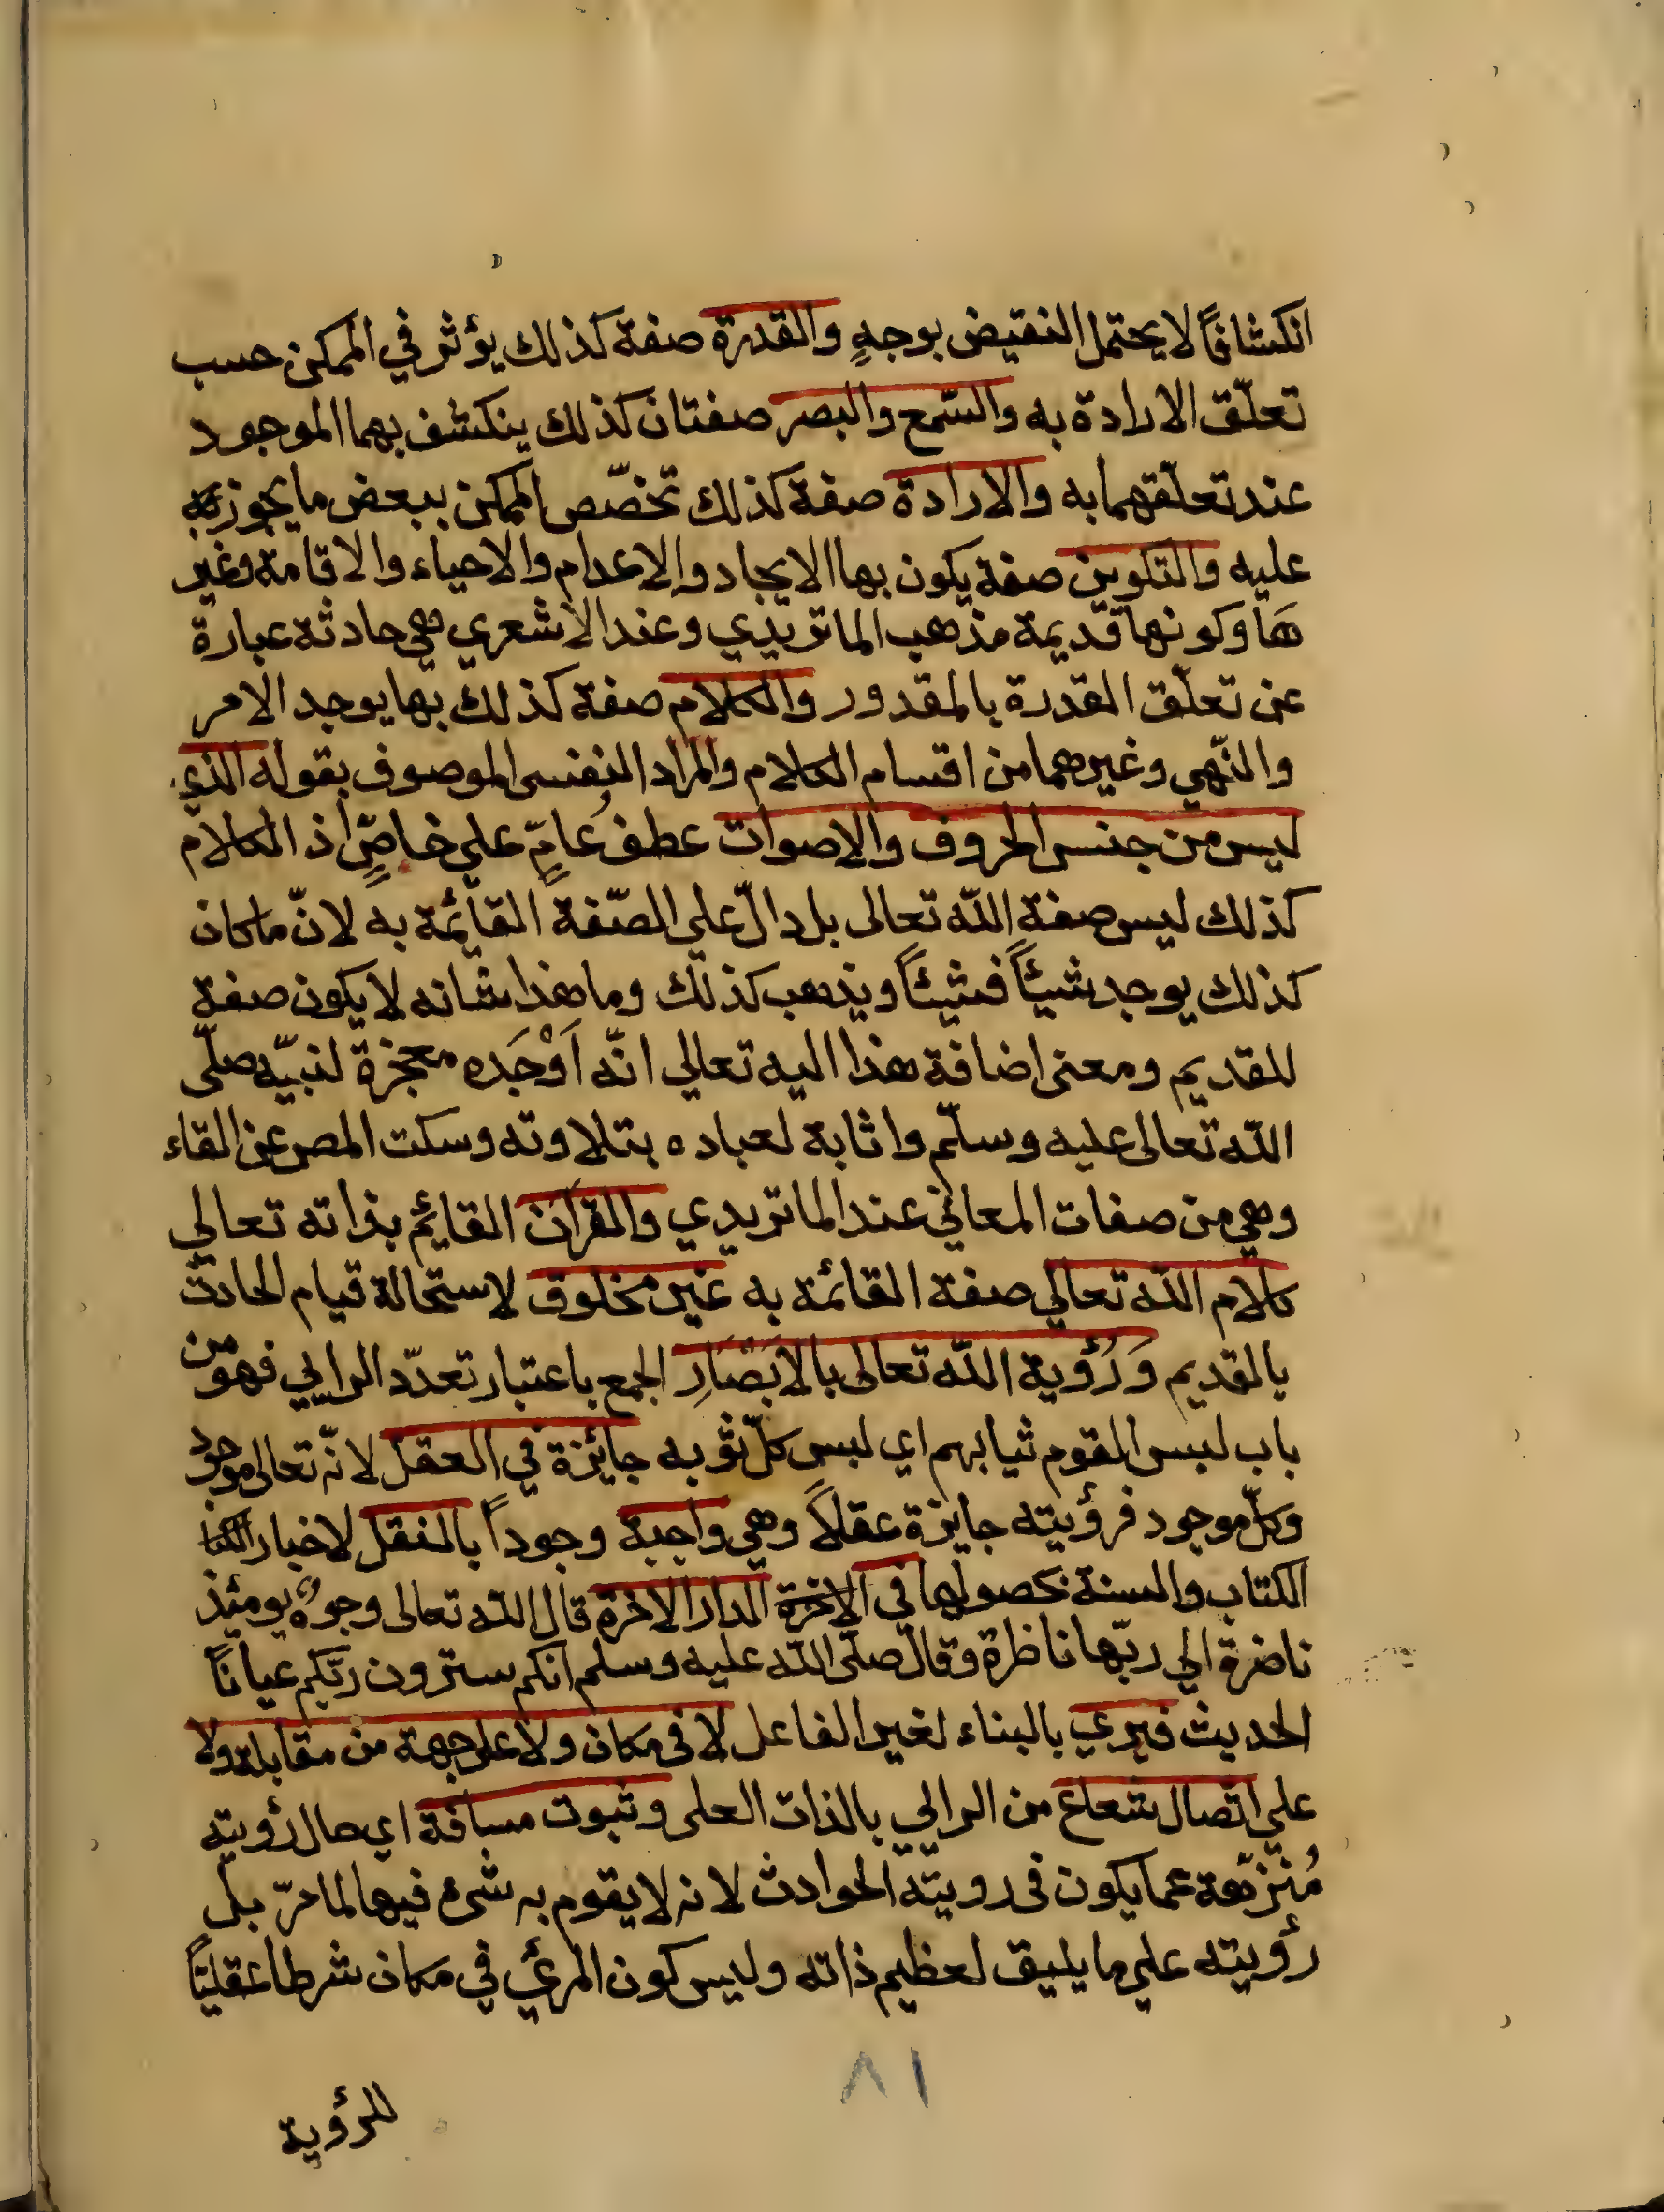 انكشافاً لا يحتمل النقيض بوجهٍ والقدرة صفة كذلك يؤثر في الممكن حسب
تعلّق الارادة به والسّمع والبصر صفتان كذلك ينكشف بهما الموجود
عند تعلّقهما به والارادة صفة كذلك تخصّص الممكن ببعض ما يجوز
عليه والتكوين صفة يكون بها الايجاد والاعدام والاحياء والاقامة وغير
هَا وكونها قديمة مذهب الماتريدي وعند الاشعري هي حادثة عبارة
عن تعلّق القدرة بالمقدور والكلام صفة كذلك بها يوجد الامر
والنّهي وغيرهما من اقسام الكلام والمراد النفسى الموصوف بقوله الذي
ليس من جنس الحروف والاصوات عطف عامٍّ علي خاصٍّ اذ الكلام
كذلك ليس صفة اللّه تعالى بل دالّ علي الصّفة القائمة به لانّ ما كان
كذلك يوجد شيئاً فشيئاً ويذهب كذلك وما هذا شانه لا يكون صفة
للقديم ومعنى اضافة هذا اليه تعالي انّه اَوْجَده معجزة لنبيّه صلّى
اللّه تعالى عليه وسلّم واثابة لعباده بتلاوته وسكت المصر عن القاء
وهي من صفات المعاني عند الماتريدي والقرآن القايئم بذاته تعالي
كلام اللّه تعالي صفة القائمة به غير مخلوق لاستحالة قيام الحادث
بالقديم وَرُؤية اللّه تعالى بالاَبْصَارِ الجمع باعتبار تعدّد الرايي فهو من
باب لبس القوم ثيابهم اي لبس كلّ ثوبه جائزة في العقل لانّه تعالى موجود
وكلّ موجود فرؤيته جايزة عقلاً وهي واجبة وجوداً بالنقل لاخبار الكتا
الكتاب والسنة بحصولها في الاخرة الدار الاخرة قال اللّه تعالى وجوهٌ يومئذ
ناضرة الي ربّها ناظرة وقال صلّى اللّه عليه وسلم انكم سترون ربّكم عياناً
الحديث فيري بالبناء لغير الفاعل لا فى مكان ولا على جهة من مقابلة ولا
علي اتصال شعاع من الرايي بالذات العلى وثبوت مسافة اي حال رؤيته
مُنزّهة عما يكون فى رويته الحوادث لانه لا يقوم به شئ فيها لما مرّ بل
رؤيته علي ما يليق لعظيم ذاته وليس كون المرئي في مكان شرطا عقليّاً
٨١
للرؤية